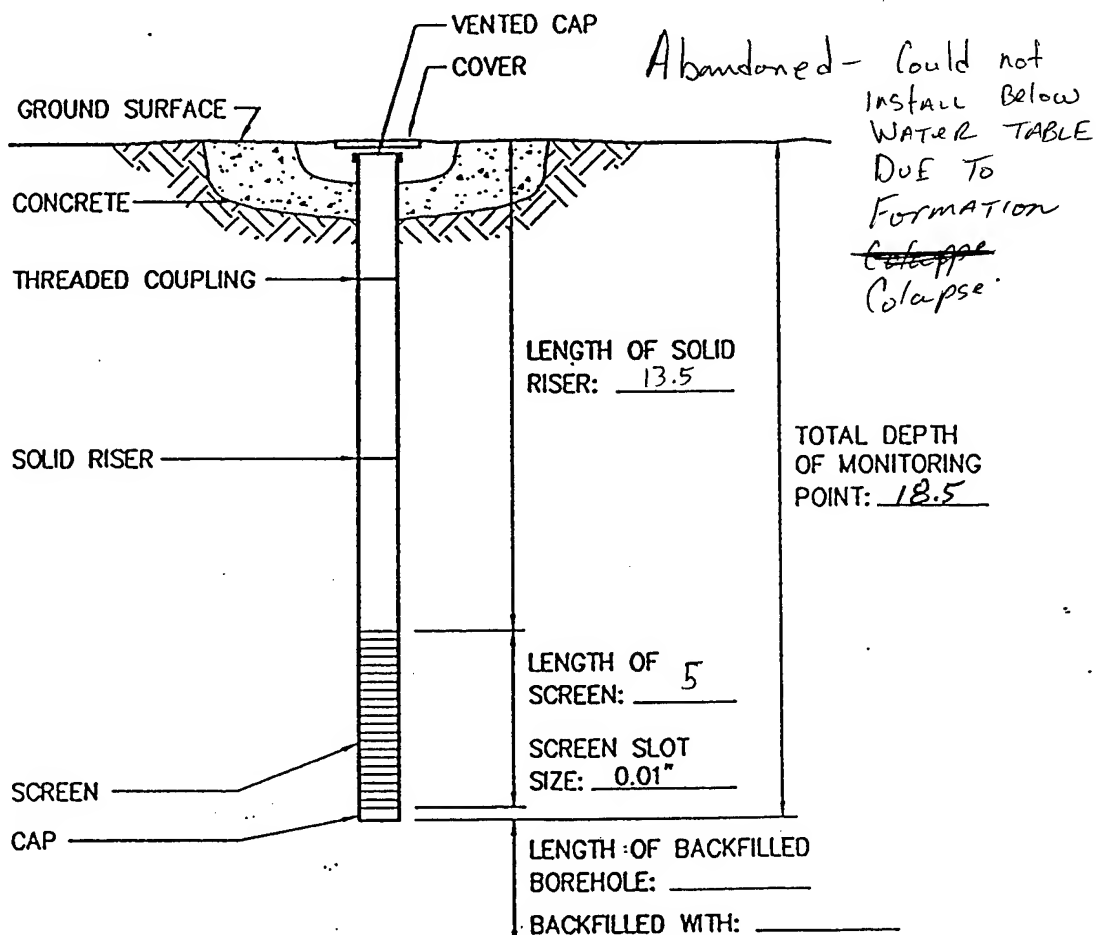 VENTED CAP
COVER
Abandoned - Could not
Install Below
WATER TABLE
DUE TO
FORMATION
Colapse.
GROUND SURFACE
CONCRETE
THREADED COUPLING
LENGTH OF SOLID
RISER: 13.5
SOLID RISER
TOTAL DEPTH
OF MONITORING
POINT: 18.5
LENGTH OF
SCREEN: 5
SCREEN SLOT
SIZE: 0.01"
SCREEN
CAP
LENGTH OF BACKFILLED
BOREHOLE:
BACKFILLED WITH: